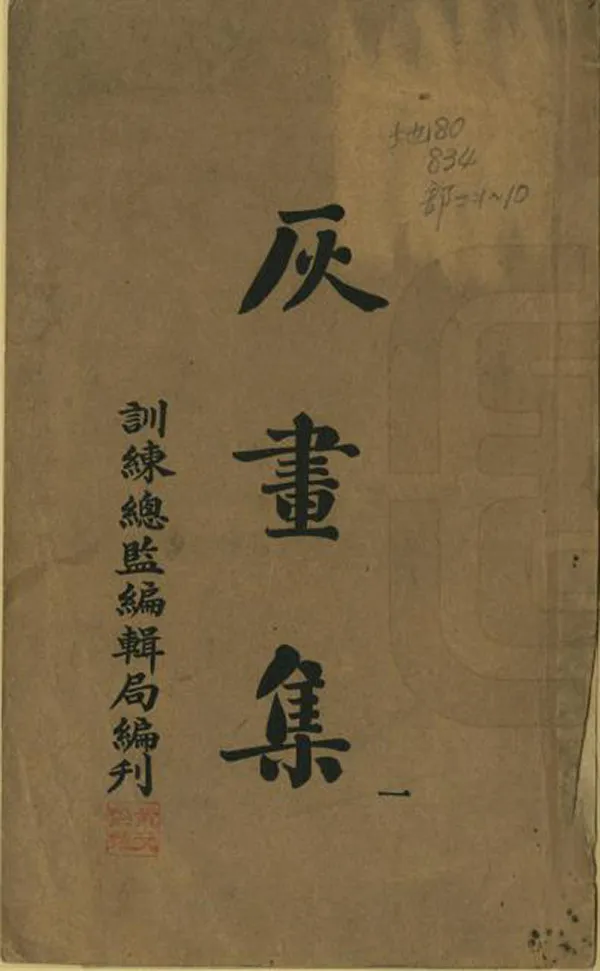 地80
834
部二:1~10
灰畫集
一
訓練總監編輯局編刋